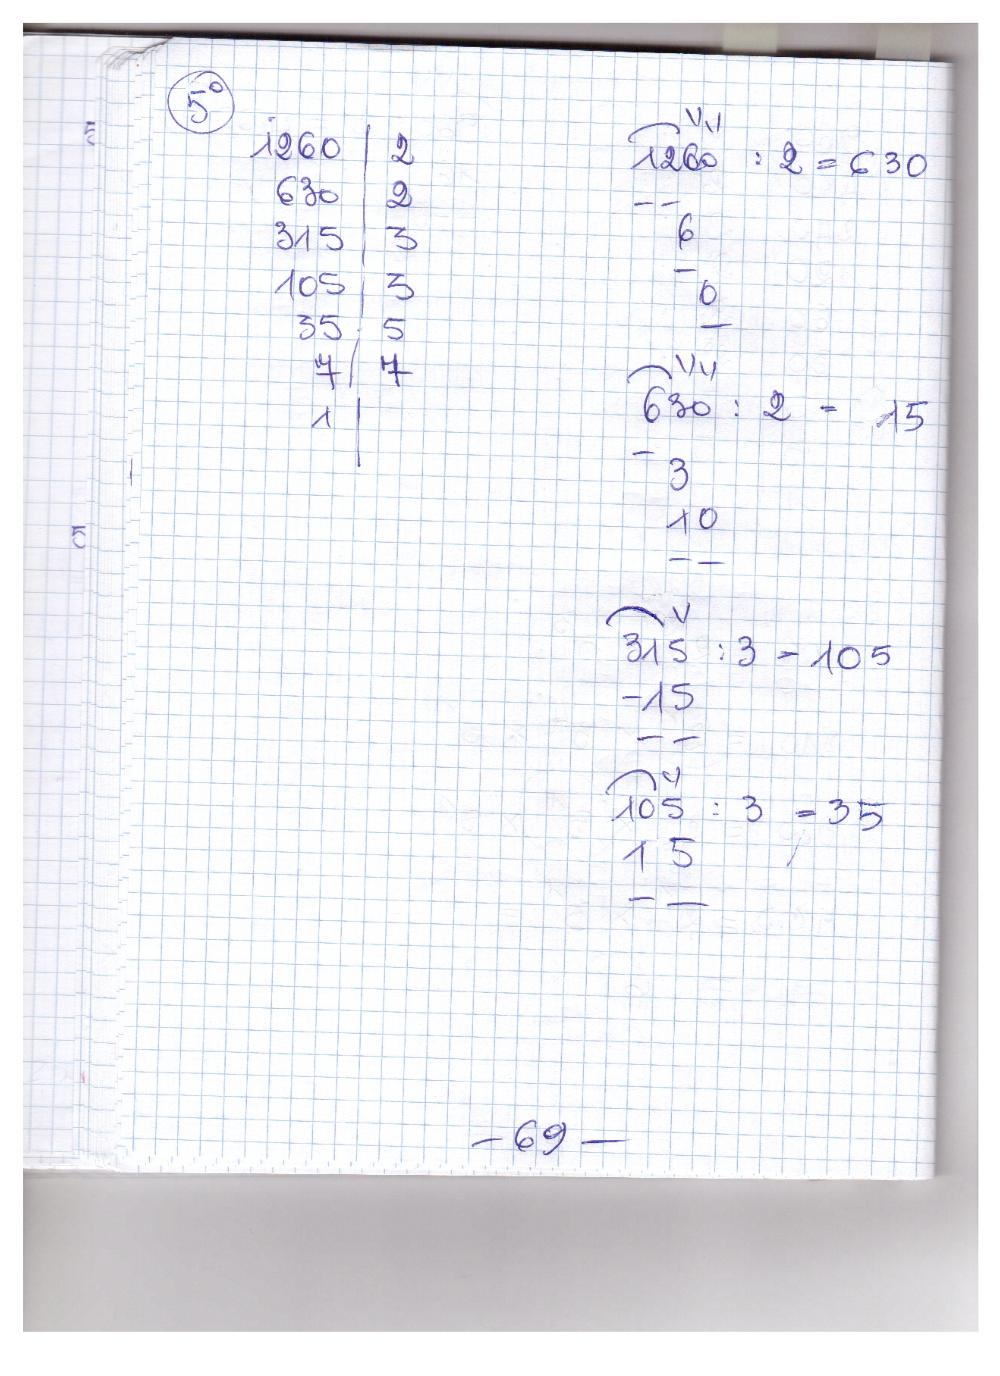 5°
1260 | 2
630 | 2
315 | 3
105 | 3
35 | 5
7 | 7
1 |
1260 : 2 = 630
--
6
-
0
—
630 : 2 = 15
-
3
10
--
315 : 3 = 105
-15
--
105 : 3 = 35
15
--
5
5
- 69 -